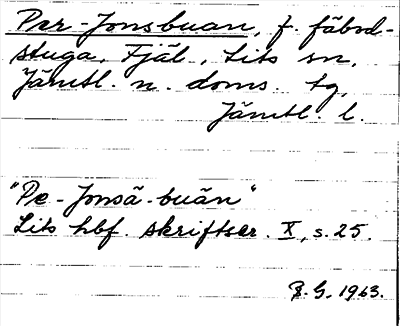 Per-Jonsbuan, f. fäbod-
stuga, Fjäl, Lits sn,
Jämtl. n. doms. tg,
Jämtl. l.
"Pe-Jonsä-buän"
Lits hbf. skriftser. X, s. 25.
R. G. 1963.